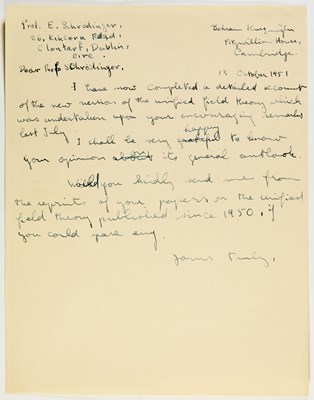 Prof. E. Schrodinger,
26, Kincora Road,
Clontarf, Dublin,
Eire.
Behram Kurşunoğlu
Fitzwilliam House,
Cambridge.
13 October 1951
Dear Prof. Schrödinger,
I have now completed a detailed account
of the new version of the unified field theory which
was undertaken upon your encouraging remarks
last July. I shall be very happy to know
your opinion on its general outlook.
Would you kindly send me from
the reprints of your papers on the unified
field theory published since 1950, if
you could spare any.
Yours truly,